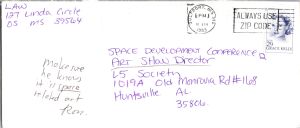 LAW
127 Linda Circle
OS MS 39564
PM
1993
ALWAYS USE
ZIP CODE
29
GRACE KELLY
SPACE DEVELOPMENT CONFERENCE
Art Show Director
L5 Society
1019A Old Monrovia Rd #168
Huntsville AL
35806
make sure
he knows
it is space
related art
from